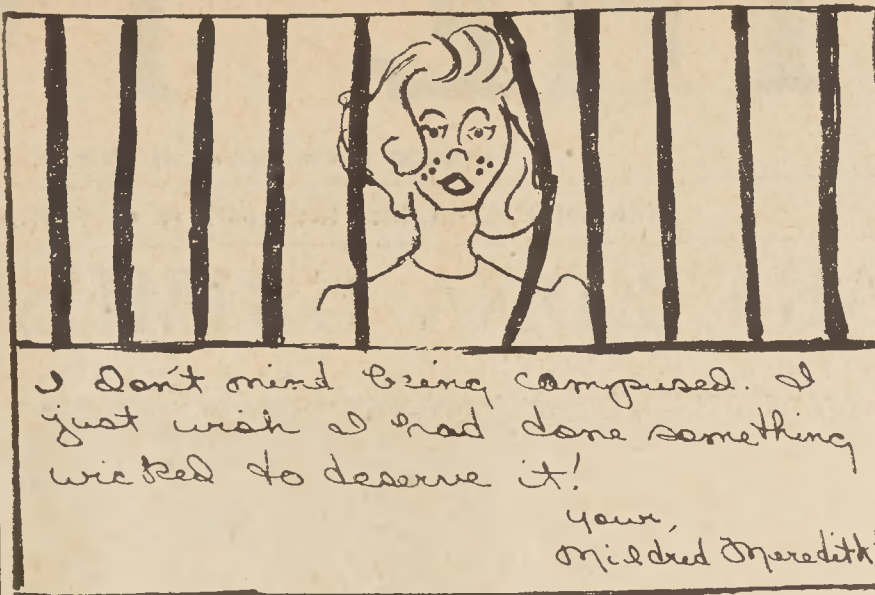 I don't mind being campused. I
just wish I had done something
wicked to deserve it!
Your,
Mildred Meredith